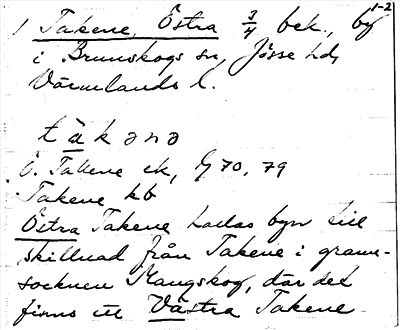 1-2
1 Takene, Östra 3/4 bek., by
i Brunskogs sn, Jösse hd,
Värmlands l.
täkənə
Ö. Takene ek, G 70, 79
Takene kb
Östra Takene kallas byn till
skillnad från Takene i grann-
socknen Mangskog, där det
finns ett Västra Takene.